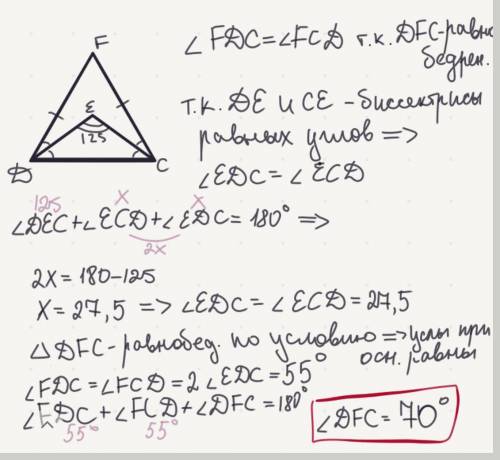 F
E
125
D
C
∠FDC=∠FCD т.к. DFC-равно
бедрен.
т.к. DE и CE - биссектрисы
равных углов =>
∠EDC = ∠ECD
125 x x
∠DEC+∠ECD+∠EDC = 180° =>
2x
2x = 180-125
x = 27,5 => ∠EDC = ∠ECD = 27,5
△DFC-равнобед. по условию => углы при
осн. равны
∠FDC = ∠FCD = 2∠EDC = 55°
∠FDC+∠FCD+∠DFC = 180°
55° 55°
∠DFC = 70°